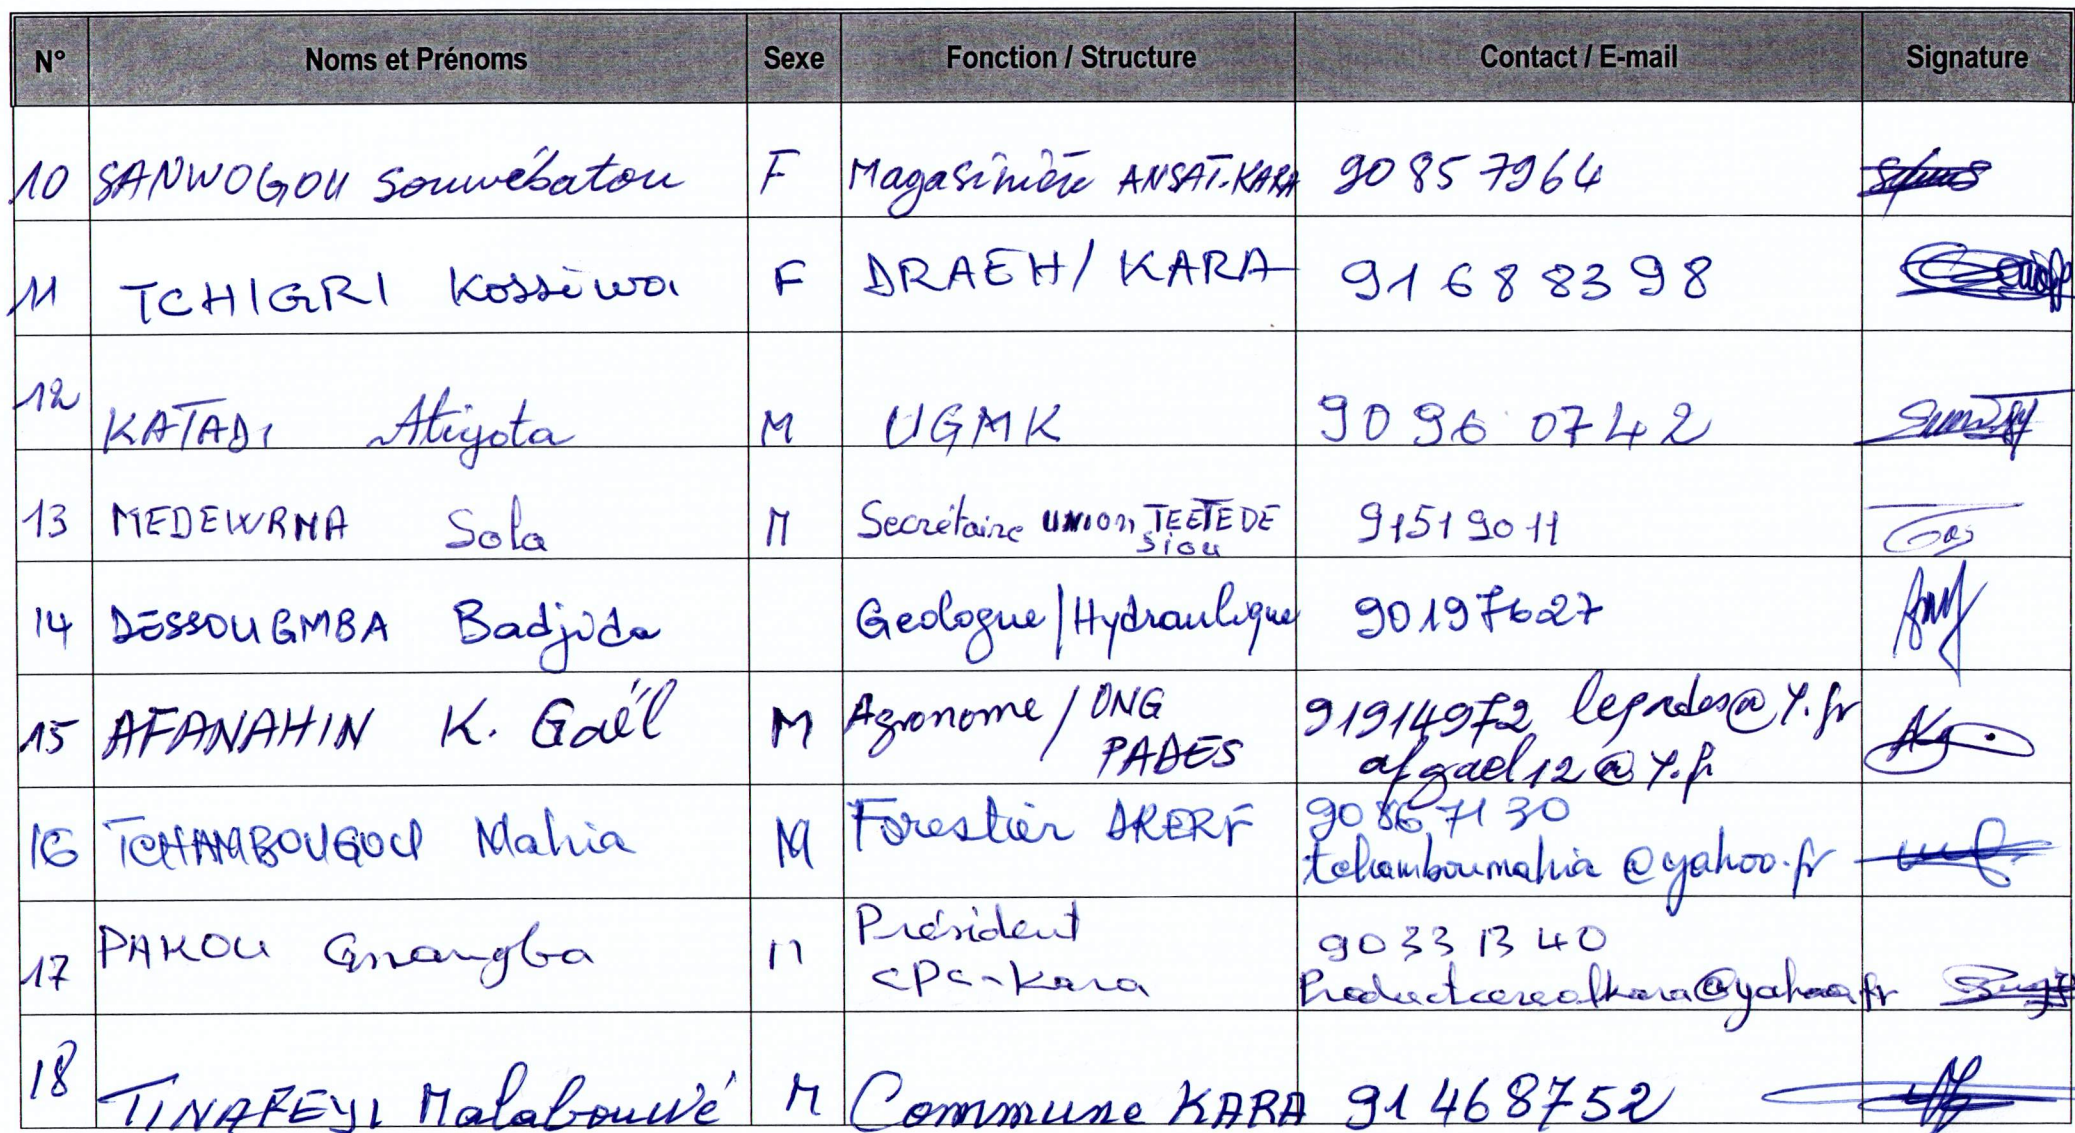 N° Noms et Prénoms Sexe Fonction / Structure Contact / E-mail Signature
10 SANWOGOU Souwébatou F Magasinière ANSAT-KARA 90 85 79 64
11 TCHIGRI Kossiwa F DRAEH / KARA 91 68 83 98
12 KATADI Atiyota M UGMK 90 96 07 42
13 MEDEWRNA Sola M Secrétaire UNION TEETE DE
Siou
91519011
14 DESSOUGMBA Badjida Geologue / Hydraulique 90197627
15 AFANAHIN K. Gaël M Agronome / ONG
PADES
91914972 @Y.fr
afgael12@Y.fr
16 TCHAMBOUGOU Mahia M Forestier 90 86 71 30
tchamboumahia@yahoo.fr
17 PAKOU Gnangba M Président
CPC-Kara
90 33 13 40
Productcerealkara@yahoo.fr
18 TINAFEYI Malabouwé M Commune KARA 91 46 87 52